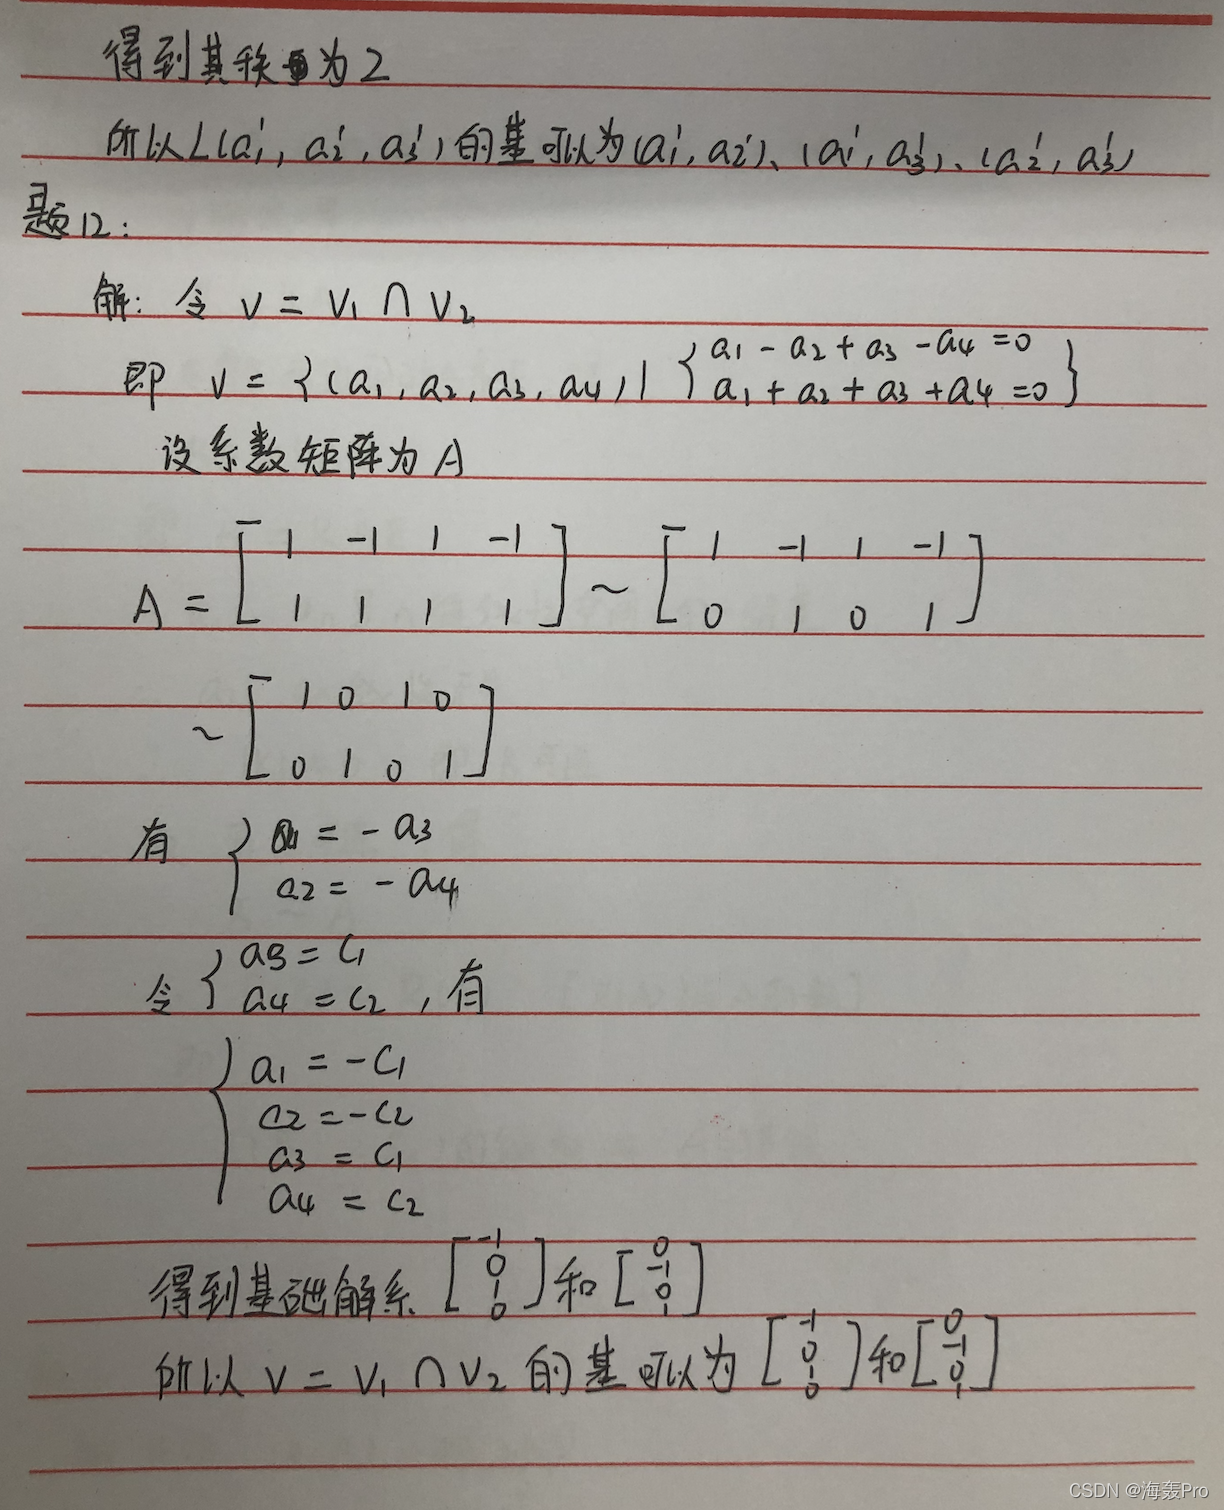 得到其秩为2
所以L(a₁', a₂', a₃')的基可以为(a₁', a₂')、(a₁', a₃')、(a₂', a₃')
题12:
解: 令 V = V₁ ∩ V₂
即 V = {(a₁, a₂, a₃, a₄) | { a₁ - a₂ + a₃ - a₄ = 0
a₁ + a₂ + a₃ + a₄ = 0 }
设系数矩阵为A
A = [ 1 -1 1 -1 ] ~ [ 1 -1 1 -1 ]
[ 1 1 1 1 ] [ 0 1 0 1 ]
~ [ 1 0 1 0 ]
[ 0 1 0 1 ]
有 { a₁ = -a₃
a₂ = -a₄
令 { a₃ = C₁
a₄ = C₂ , 有
{ a₁ = -C₁
a₂ = -C₂
a₃ = C₁
a₄ = C₂
得到基础解系 [-1 0 1 0] 和 [0 -1 0 1]
所以 V = V₁ ∩ V₂ 的基可以为 [-1 0 1 0] 和 [0 -1 0 1]
CSDN @海轰Pro